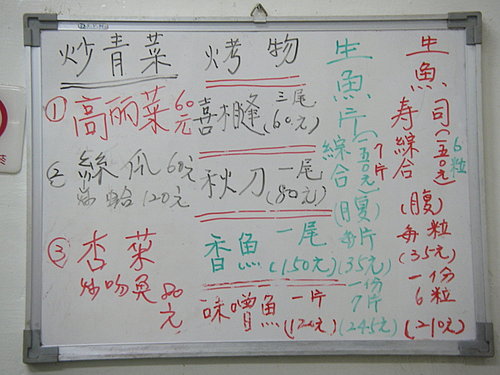 炒青菜
① 高丽菜 60元
② 絲瓜 60元
炒蛤 120元
③ 杏菜
炒吻魚 80元
烤物
喜相逢 三尾(60元)
秋刀 一尾(80元)
香魚 一尾(150元)
味噌魚 一片(120元)
生魚片
綜合(一五0元)7片
(腹)
每片
(35元)
一份
7片
(245元)
生魚
寿司(一五0元)6粒
綜合
(腹)
每粒
(35元)
一份
6粒
(210元)